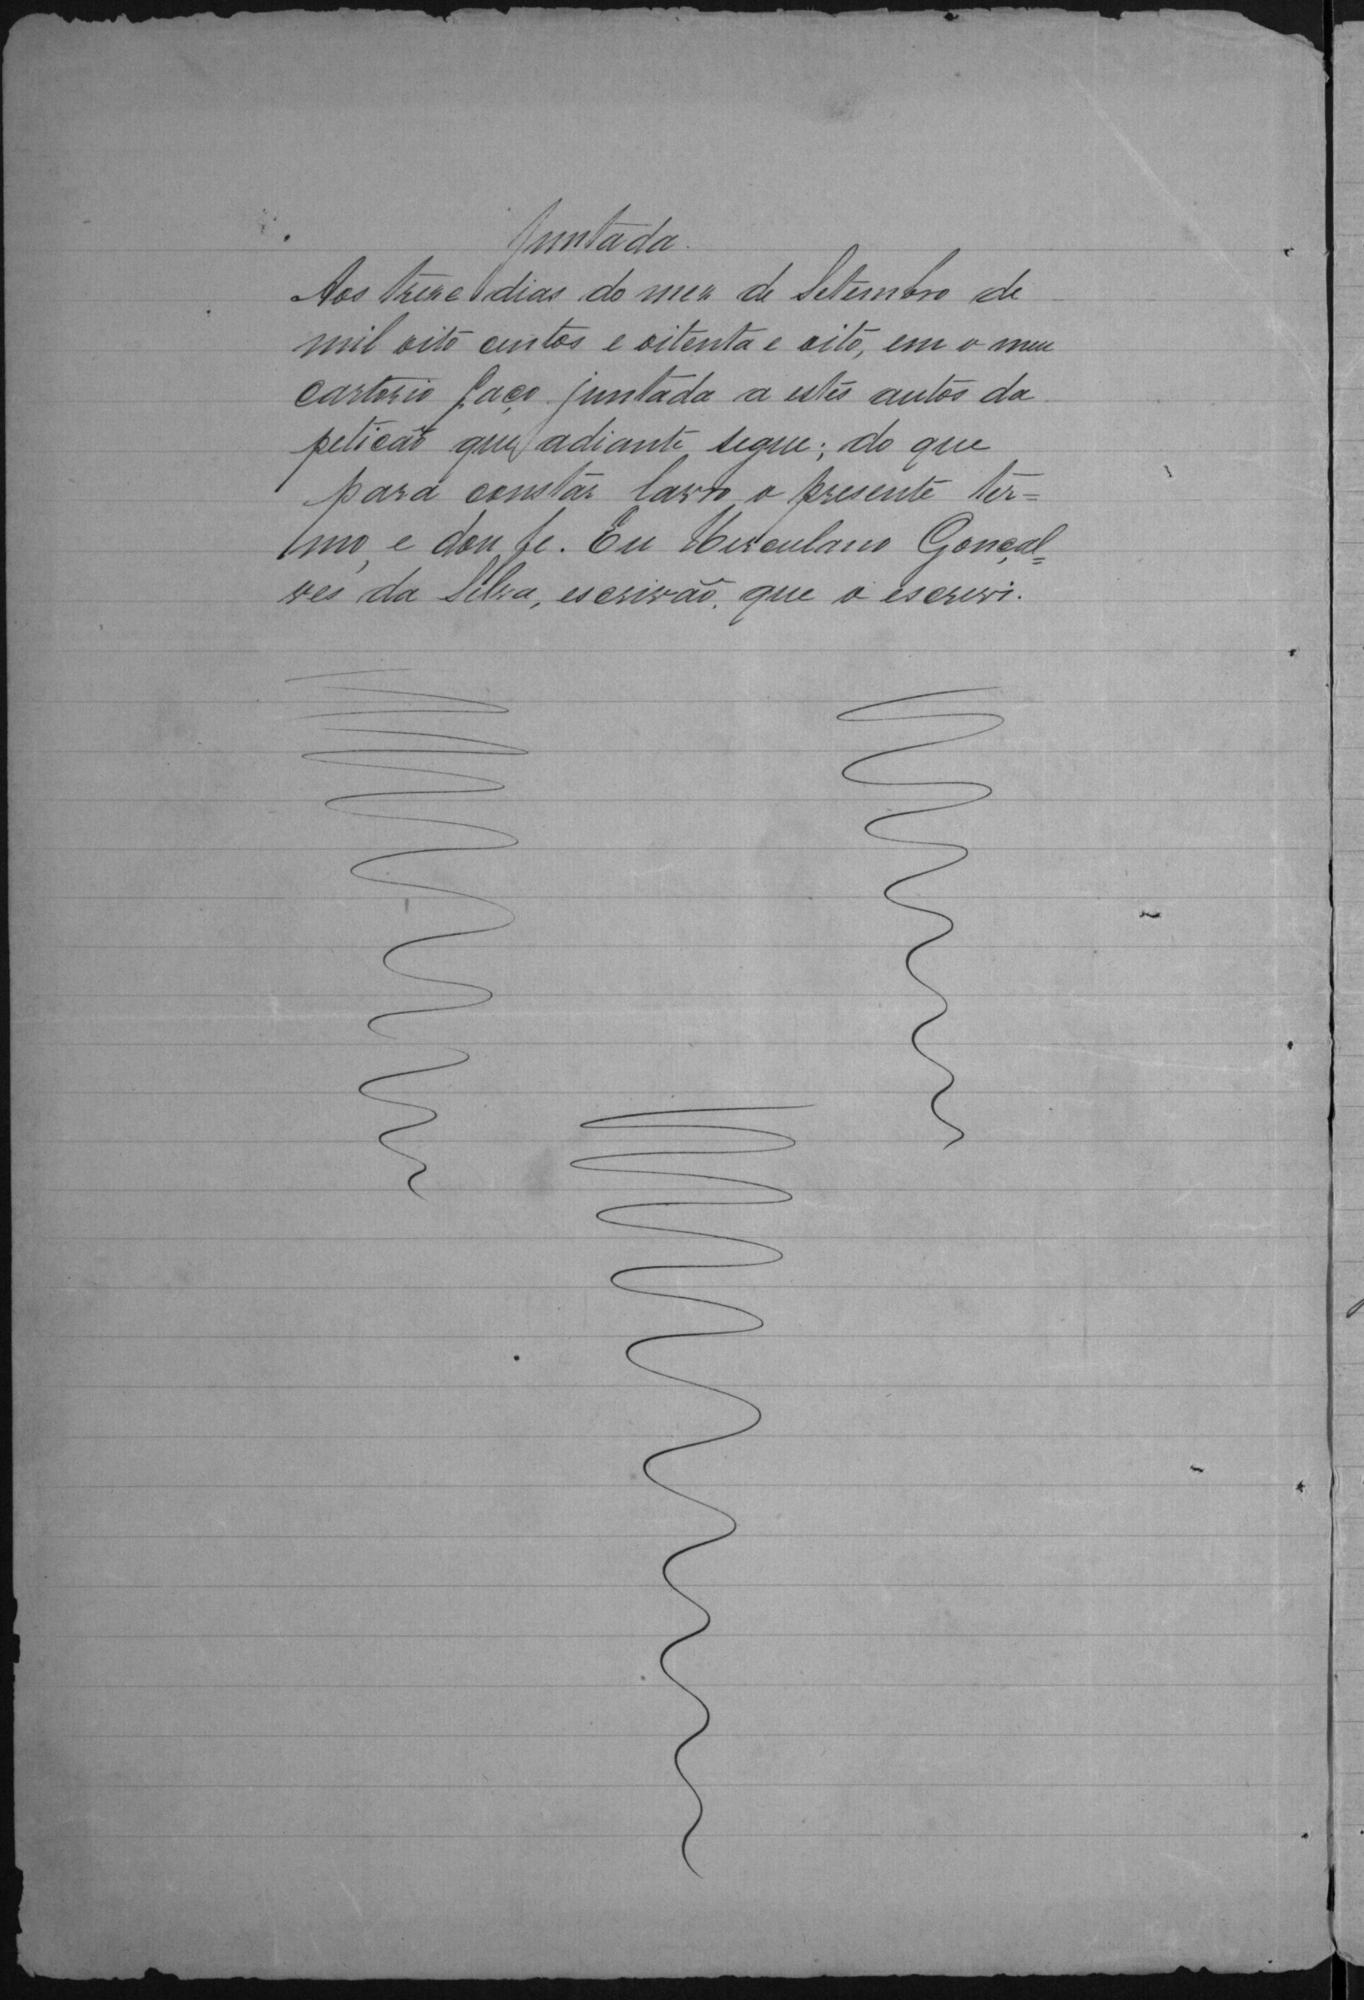 Juntada.
Aos treze dias do mez de Setembro de
mil oito centos e oitenta e oito, em o meu
cartorio faço juntada a estes autos da
petição que adiante segue; do que
para constar lavro o presente ter=
mo, e dou fé. Eu Herculano Gonçal=
ves da Silva, escrivão, que o escrevi.